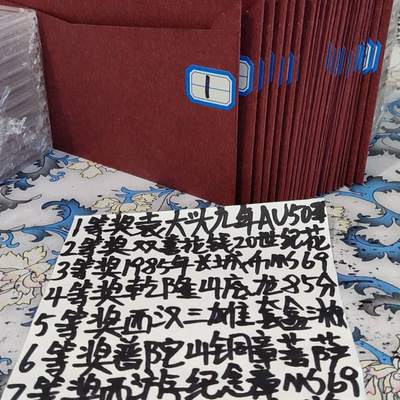 1
1等奖袁大头九年AU50
2等奖双
20世纪花
3等奖1985年长城币MS69
4等奖乾隆山底龙85分
5等奖西汉三雄套
6等奖普陀山铜章菩萨
7等奖西游记纪念章MS69